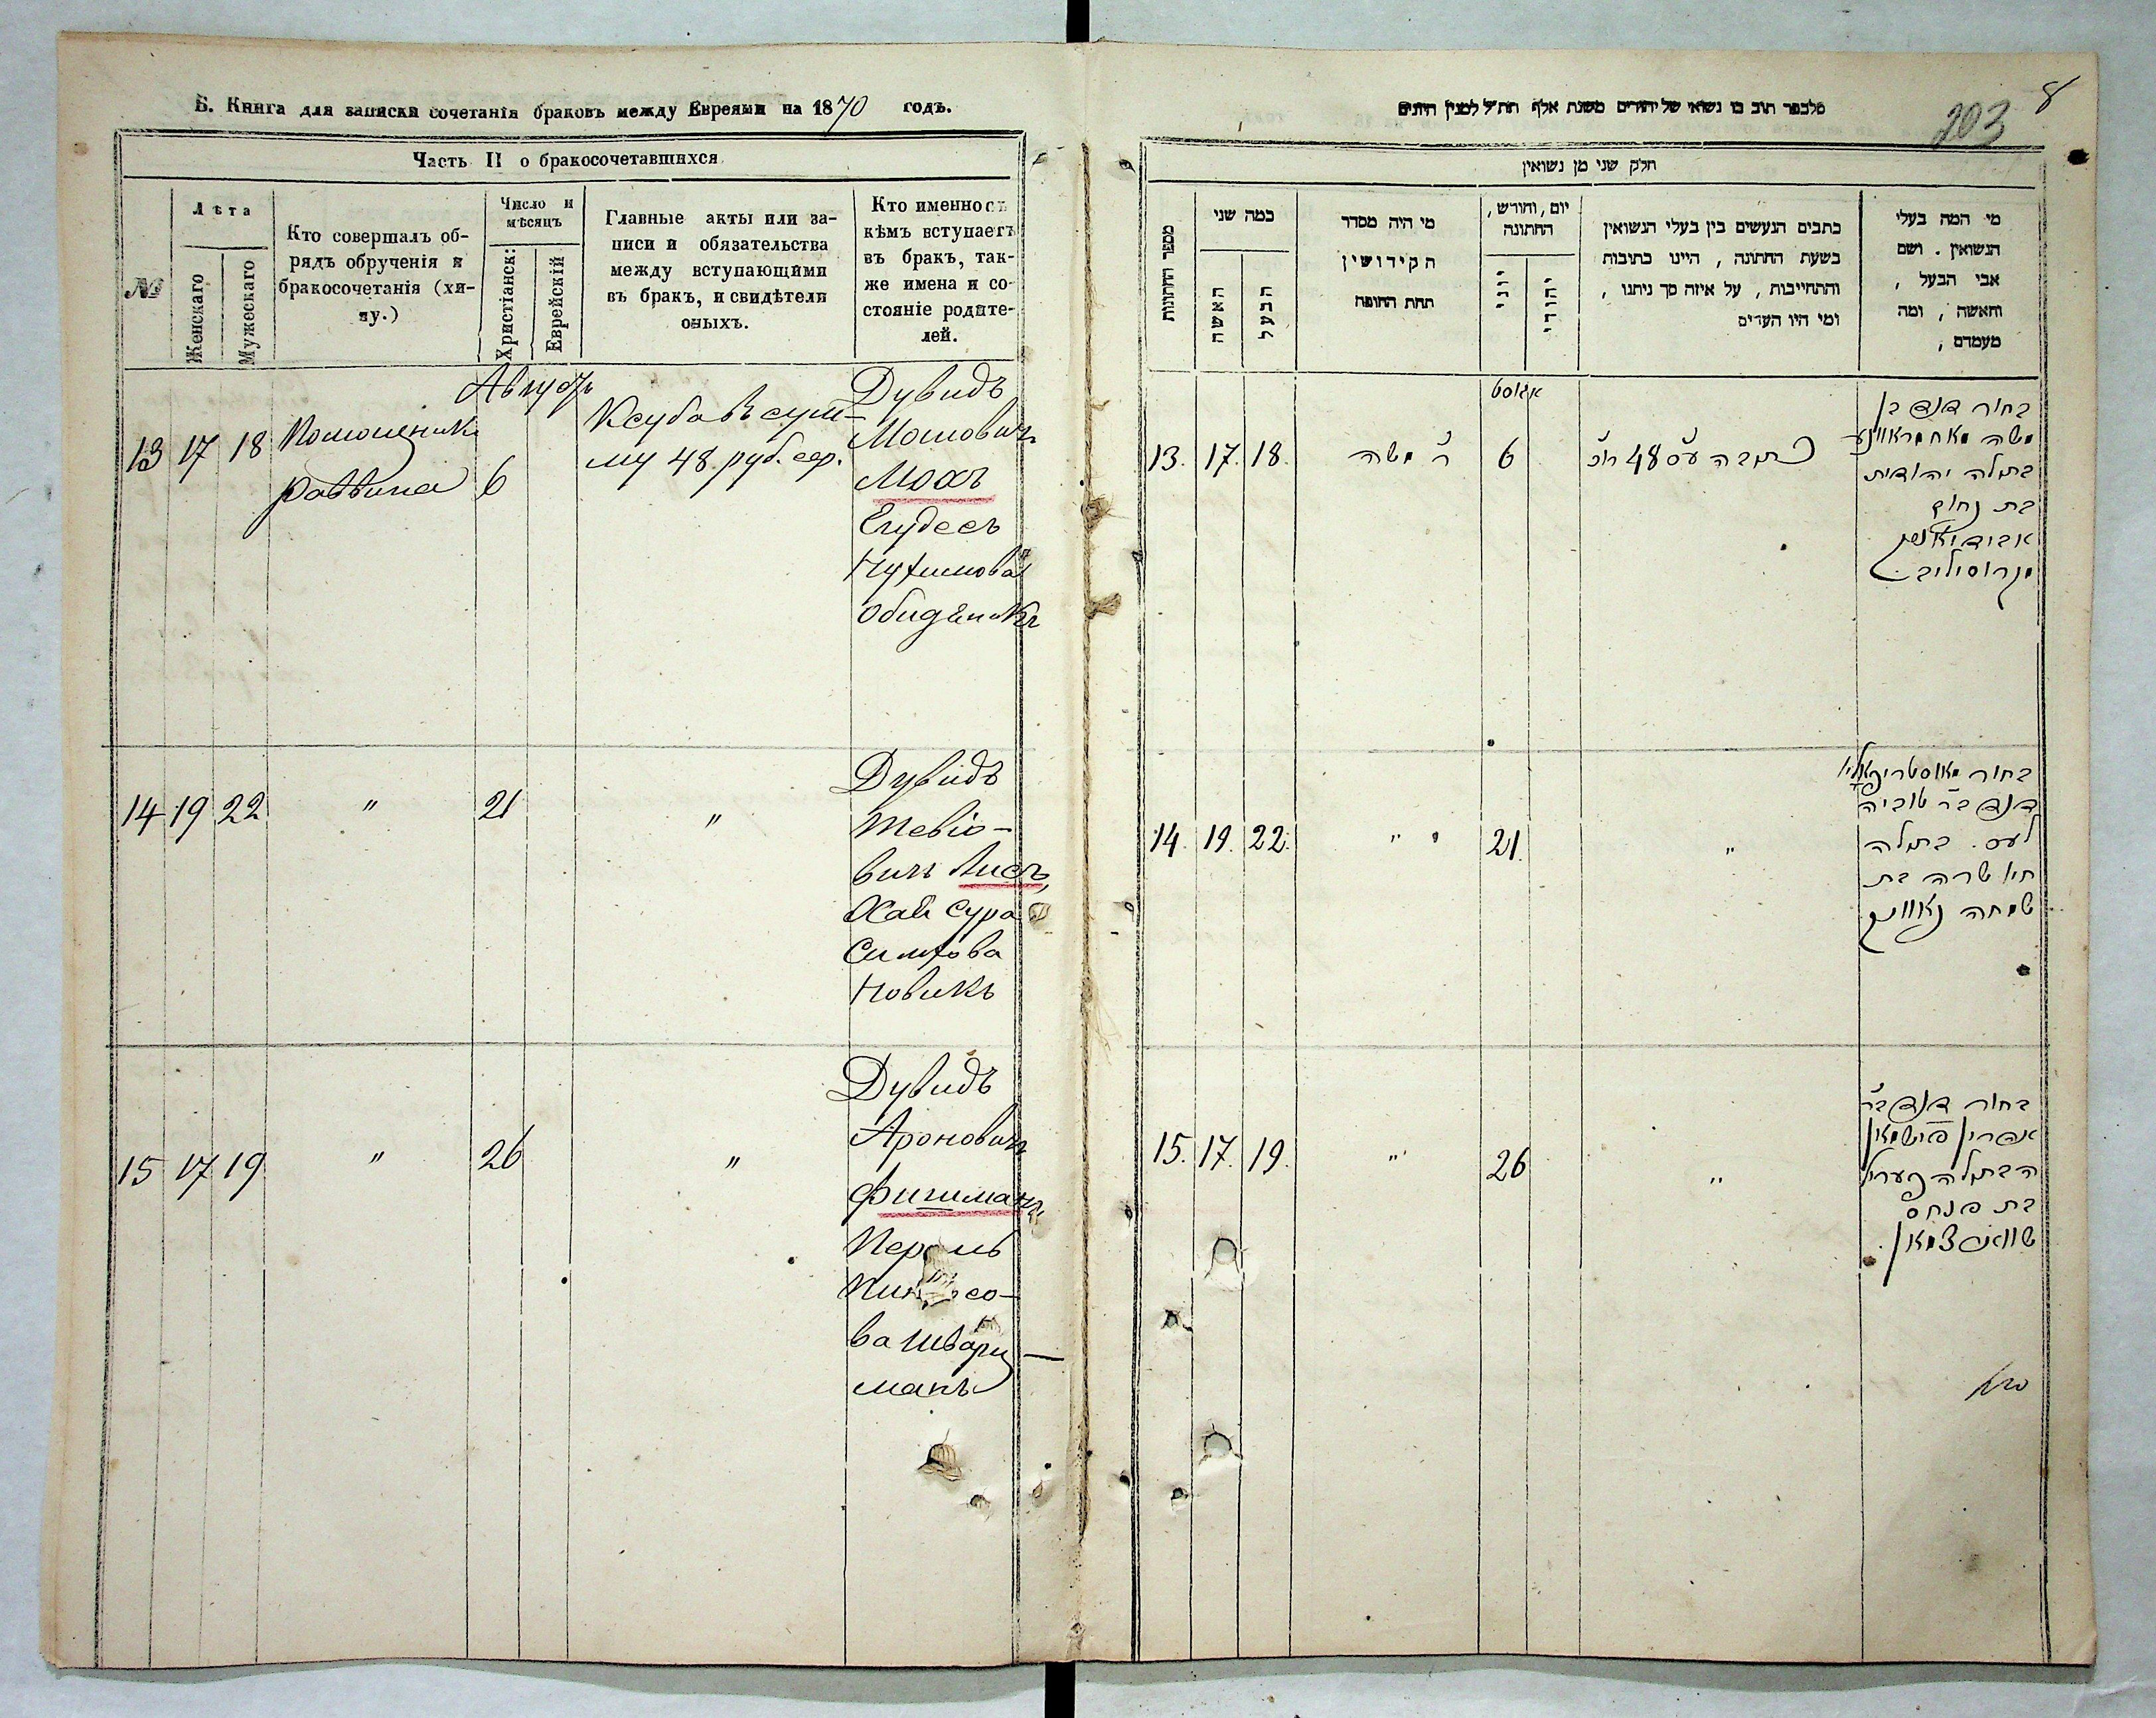 Б. Книга для записки сочетанія браковъ между Евреями на 1870 годъ.
Часть II о бракосочетавшихся
№
Лѣта
Женскаго
Мужескаго
Кто совершалъ об-
рядъ обрученія и
бракосочетанія (хи-
пу.)
Число и
мѣсяцъ
Христіанск:
Еврейскій
Главные акты или за-
писи и обязательства
между вступающими
въ бракъ, и свидѣтели
оныхъ.
Кто именно съ
кѣмъ вступаетъ
въ бракъ, так-
же имена и со-
стояніе родите-
лей.
Августъ
13 17 18
Помощникъ
раввина
6
Ксуба въ сум-
му 48 руб. сер.
Дувидъ
Мошовичъ
Мохъ
Егудесъ
Нухимова
14 19 22 " 21 "
Дувидъ
Тевіо-
вичъ Лисъ,
Хая Сура
Симхова
Новикъ
15 17 19 " 26 "
Дувидъ
Ароновичъ
Фишманъ
Перель
ва Шварц-
манъ
203
8
חלק שני מן נשואין
מספר החתונות
כמה שני
האשה
הבעל
מי היה מסדר
הקידושין
תחת החופה
יום, וחורש,
החתונה
יוני
יהודי
כתבים הנעשים בין בעלי הנשואין
בשעת החתונה, היינו כתובות
והתחייבות, על איזה סך ניתנו,
ומי היו העדים
מי המה בעלי
הנשואין. ושם
אבי הבעל,
והאשה, ומה
מעמדם,
אוגוסט
13. 17. 18.
ר' משה
6
כתובה ע"ס 48
בחור דוד בן
משה
בתולה יהודית
בת נחום
14. 19. 22. " " 21. "
בחור
דוד ב"ר טוביה
ליס. בתולה
חיי שרה בת
שמחה נאוויק
15. 17. 19. " 26 "
בחור דוד ב"ר
אהרן פישמאן
הבתולה פערל
בת פנחס
שווארצמאן.